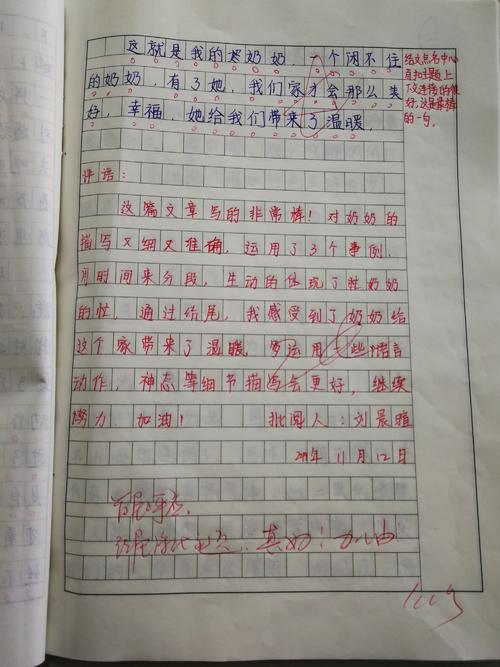 这就是我的好奶奶，一个闲不住
的奶奶，有了她，我们家才会那么美
好，幸福，她给我们带来了温暖。
结文点名中心
直扣主题上
下文连接的很
好，这是最棒
的一句。
评语：
这篇文章写的非常棒！对奶奶的
描写又细又准确，运用了3个事例，
用时间来分段，生动的体现了奶奶
的忙，通过结尾，我感受到了奶奶给
这个家带来了温暖，多运用一些语言
动作，神态等细节描写会更好，继续
努力 加油！ 批阅人：刘晨
年11月12日
真好！加油